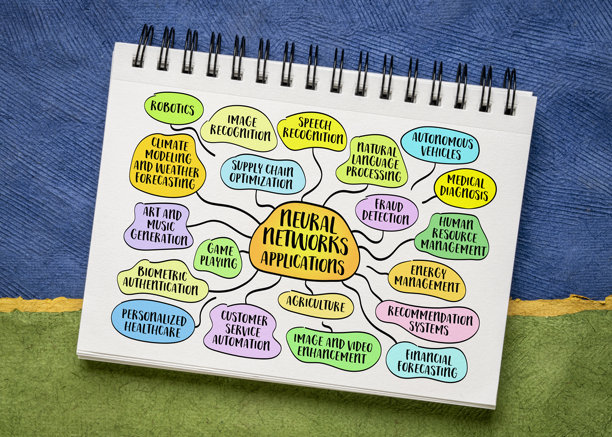 ROBOTICS
IMAGE
RECOGNITION
SPEECH
RECOGNITION
AUTONOMOUS
VEHICLES
CLIMATE
MODELING
AND WEATHER
FORECASTING
SUPPLY CHAIN
OPTIMIZATION
NATURAL
LANGUAGE
PROCESSING
MEDICAL
DIAGNOSIS
ART AND
MUSIC
GENERATION
NEURAL
NETWORKS
APPLICATIONS
FRAUD
DETECTION
HUMAN
RESOURCE
MANAGEMENT
GAME
PLAYING
BIOMETRIC
AUTHENTICATION
ENERGY
MANAGEMENT
AGRICULTURE
PERSONALIZED
HEALTHCARE
CUSTOMER
SERVICE
AUTOMATION
IMAGE AND VIDEO
ENHANCEMENT
RECOMMENDATION
SYSTEMS
FINANCIAL
FORECASTING